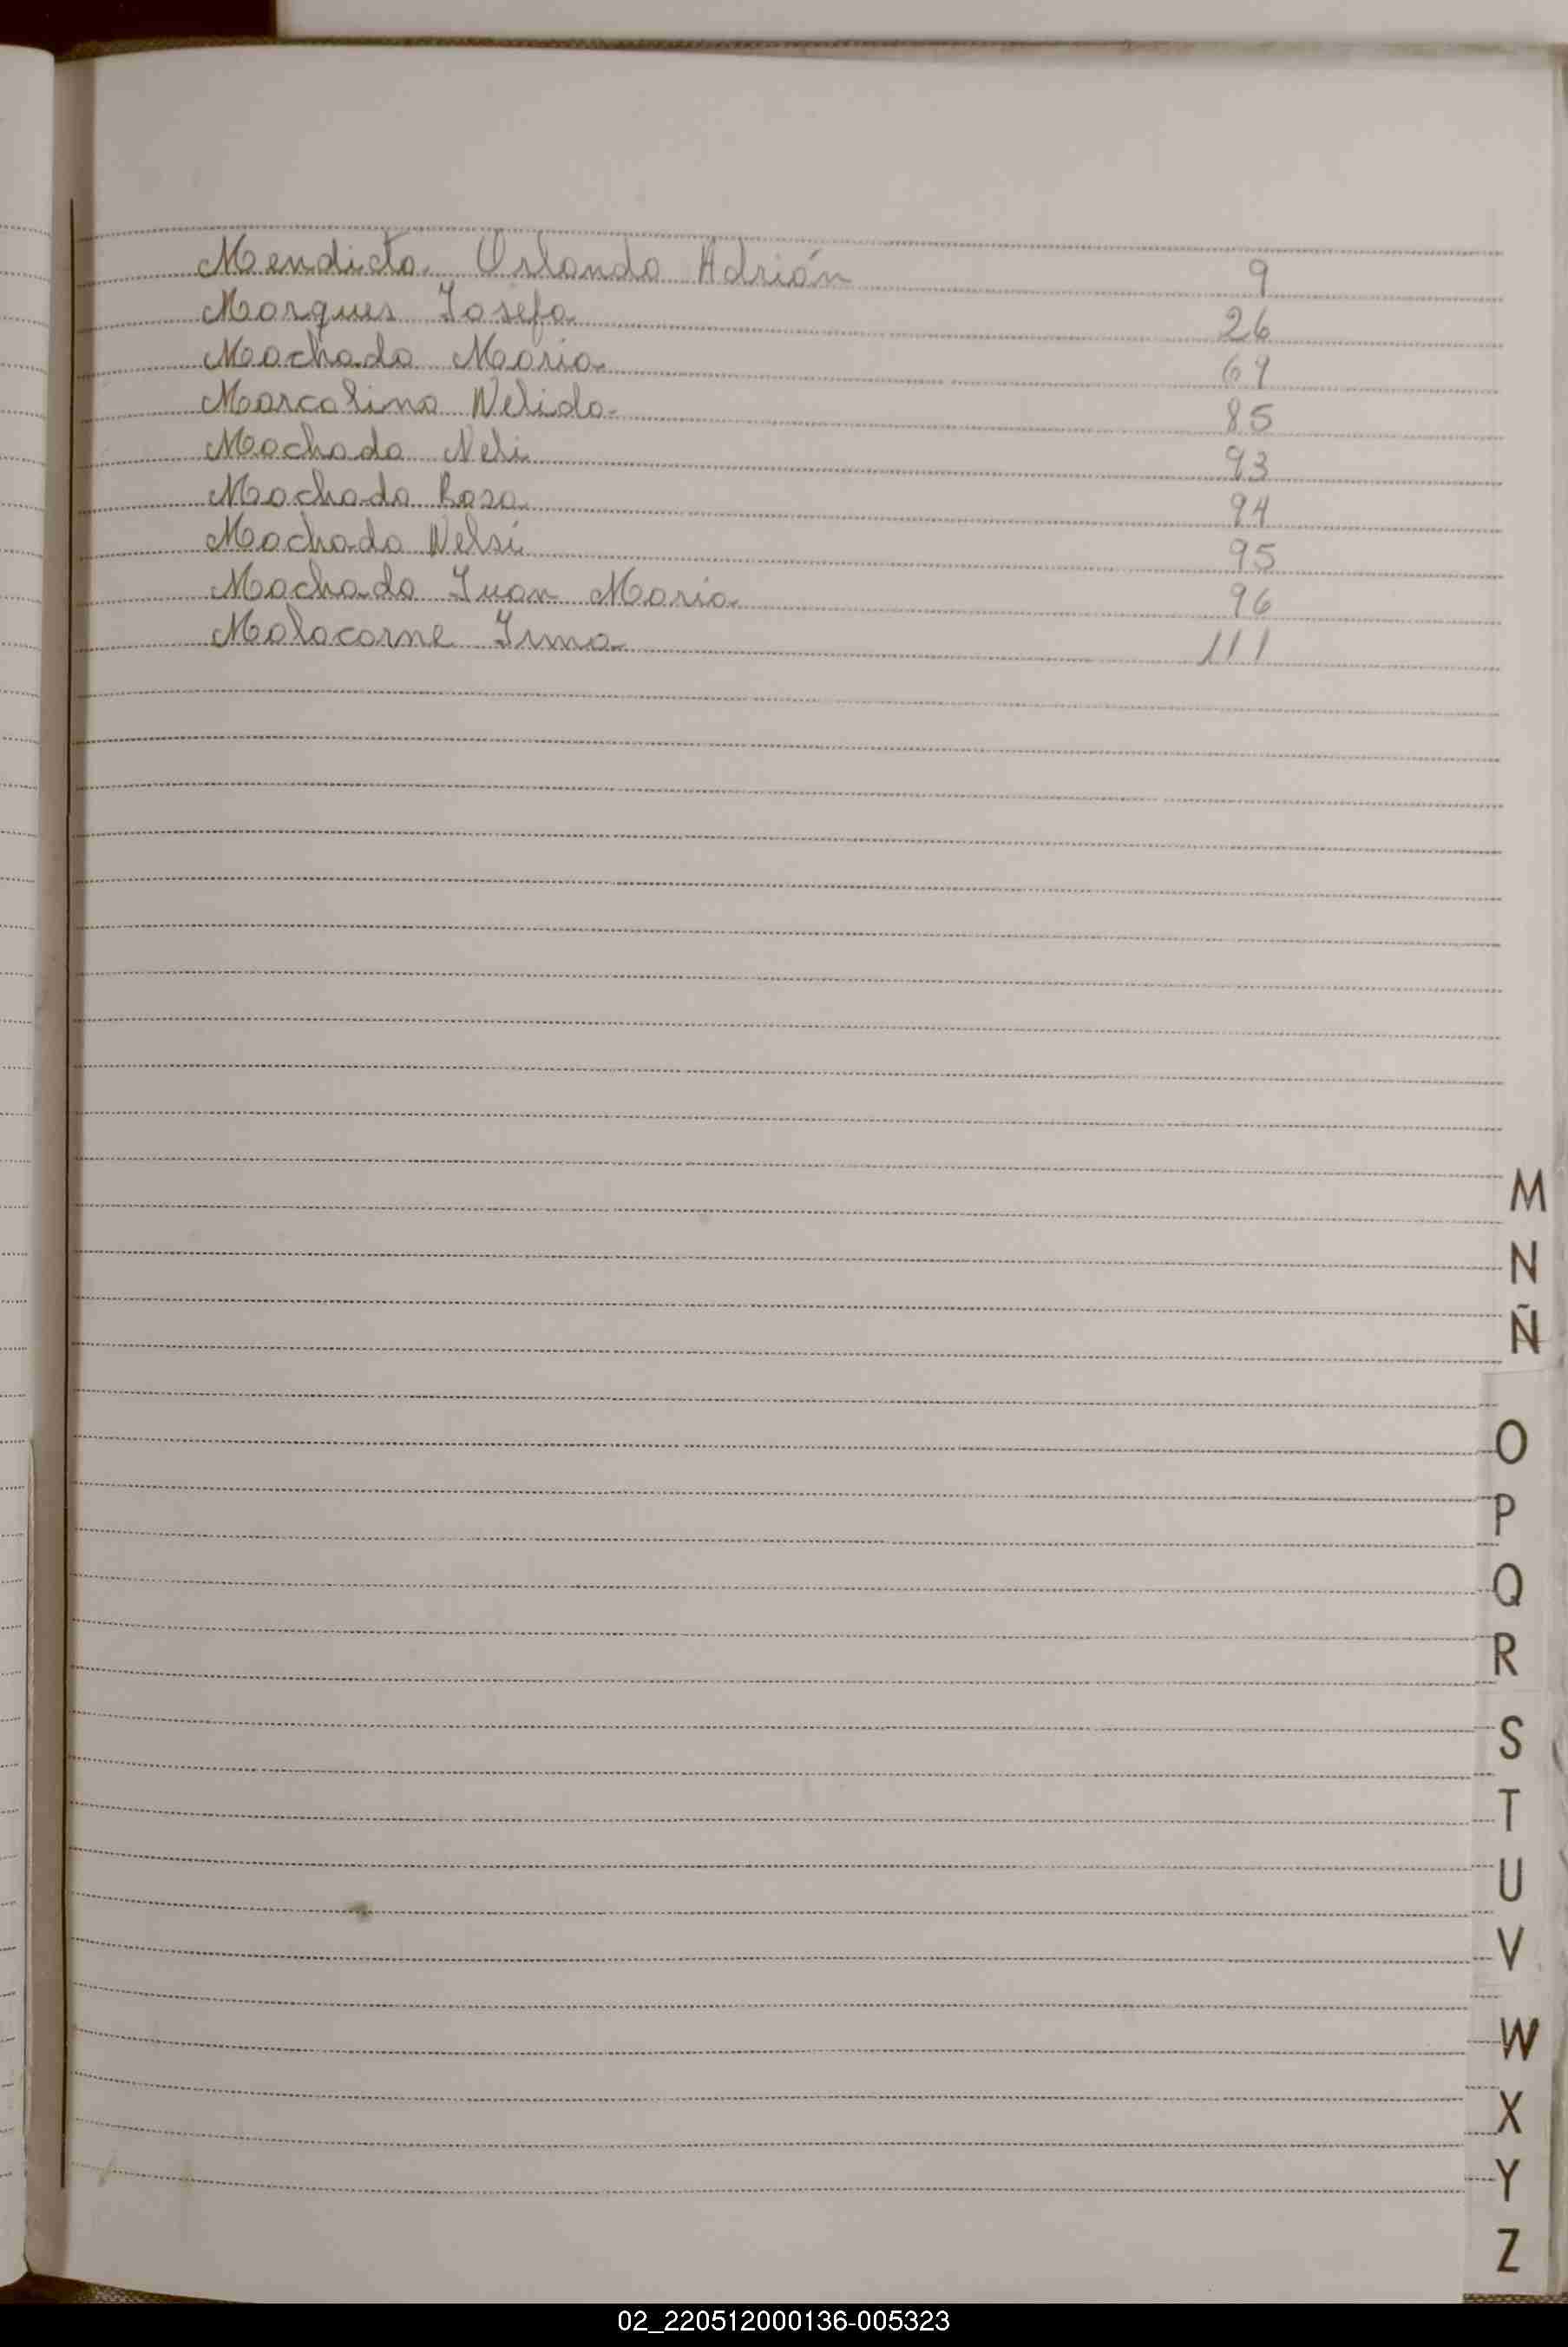 Mendicta Orlando Adrián 9
Marques Josefa 26
Machado Maria 69
Marcolina Nelida 85
Machado Neli 93
Machado Rosa 94
Machado Nelsi 95
Machado Juan Maria 96
Malacorne Irma 111
M
N
Ñ
O
P
Q
R
S
T
U
V
W
X
Y
Z
02_220512000136-005323